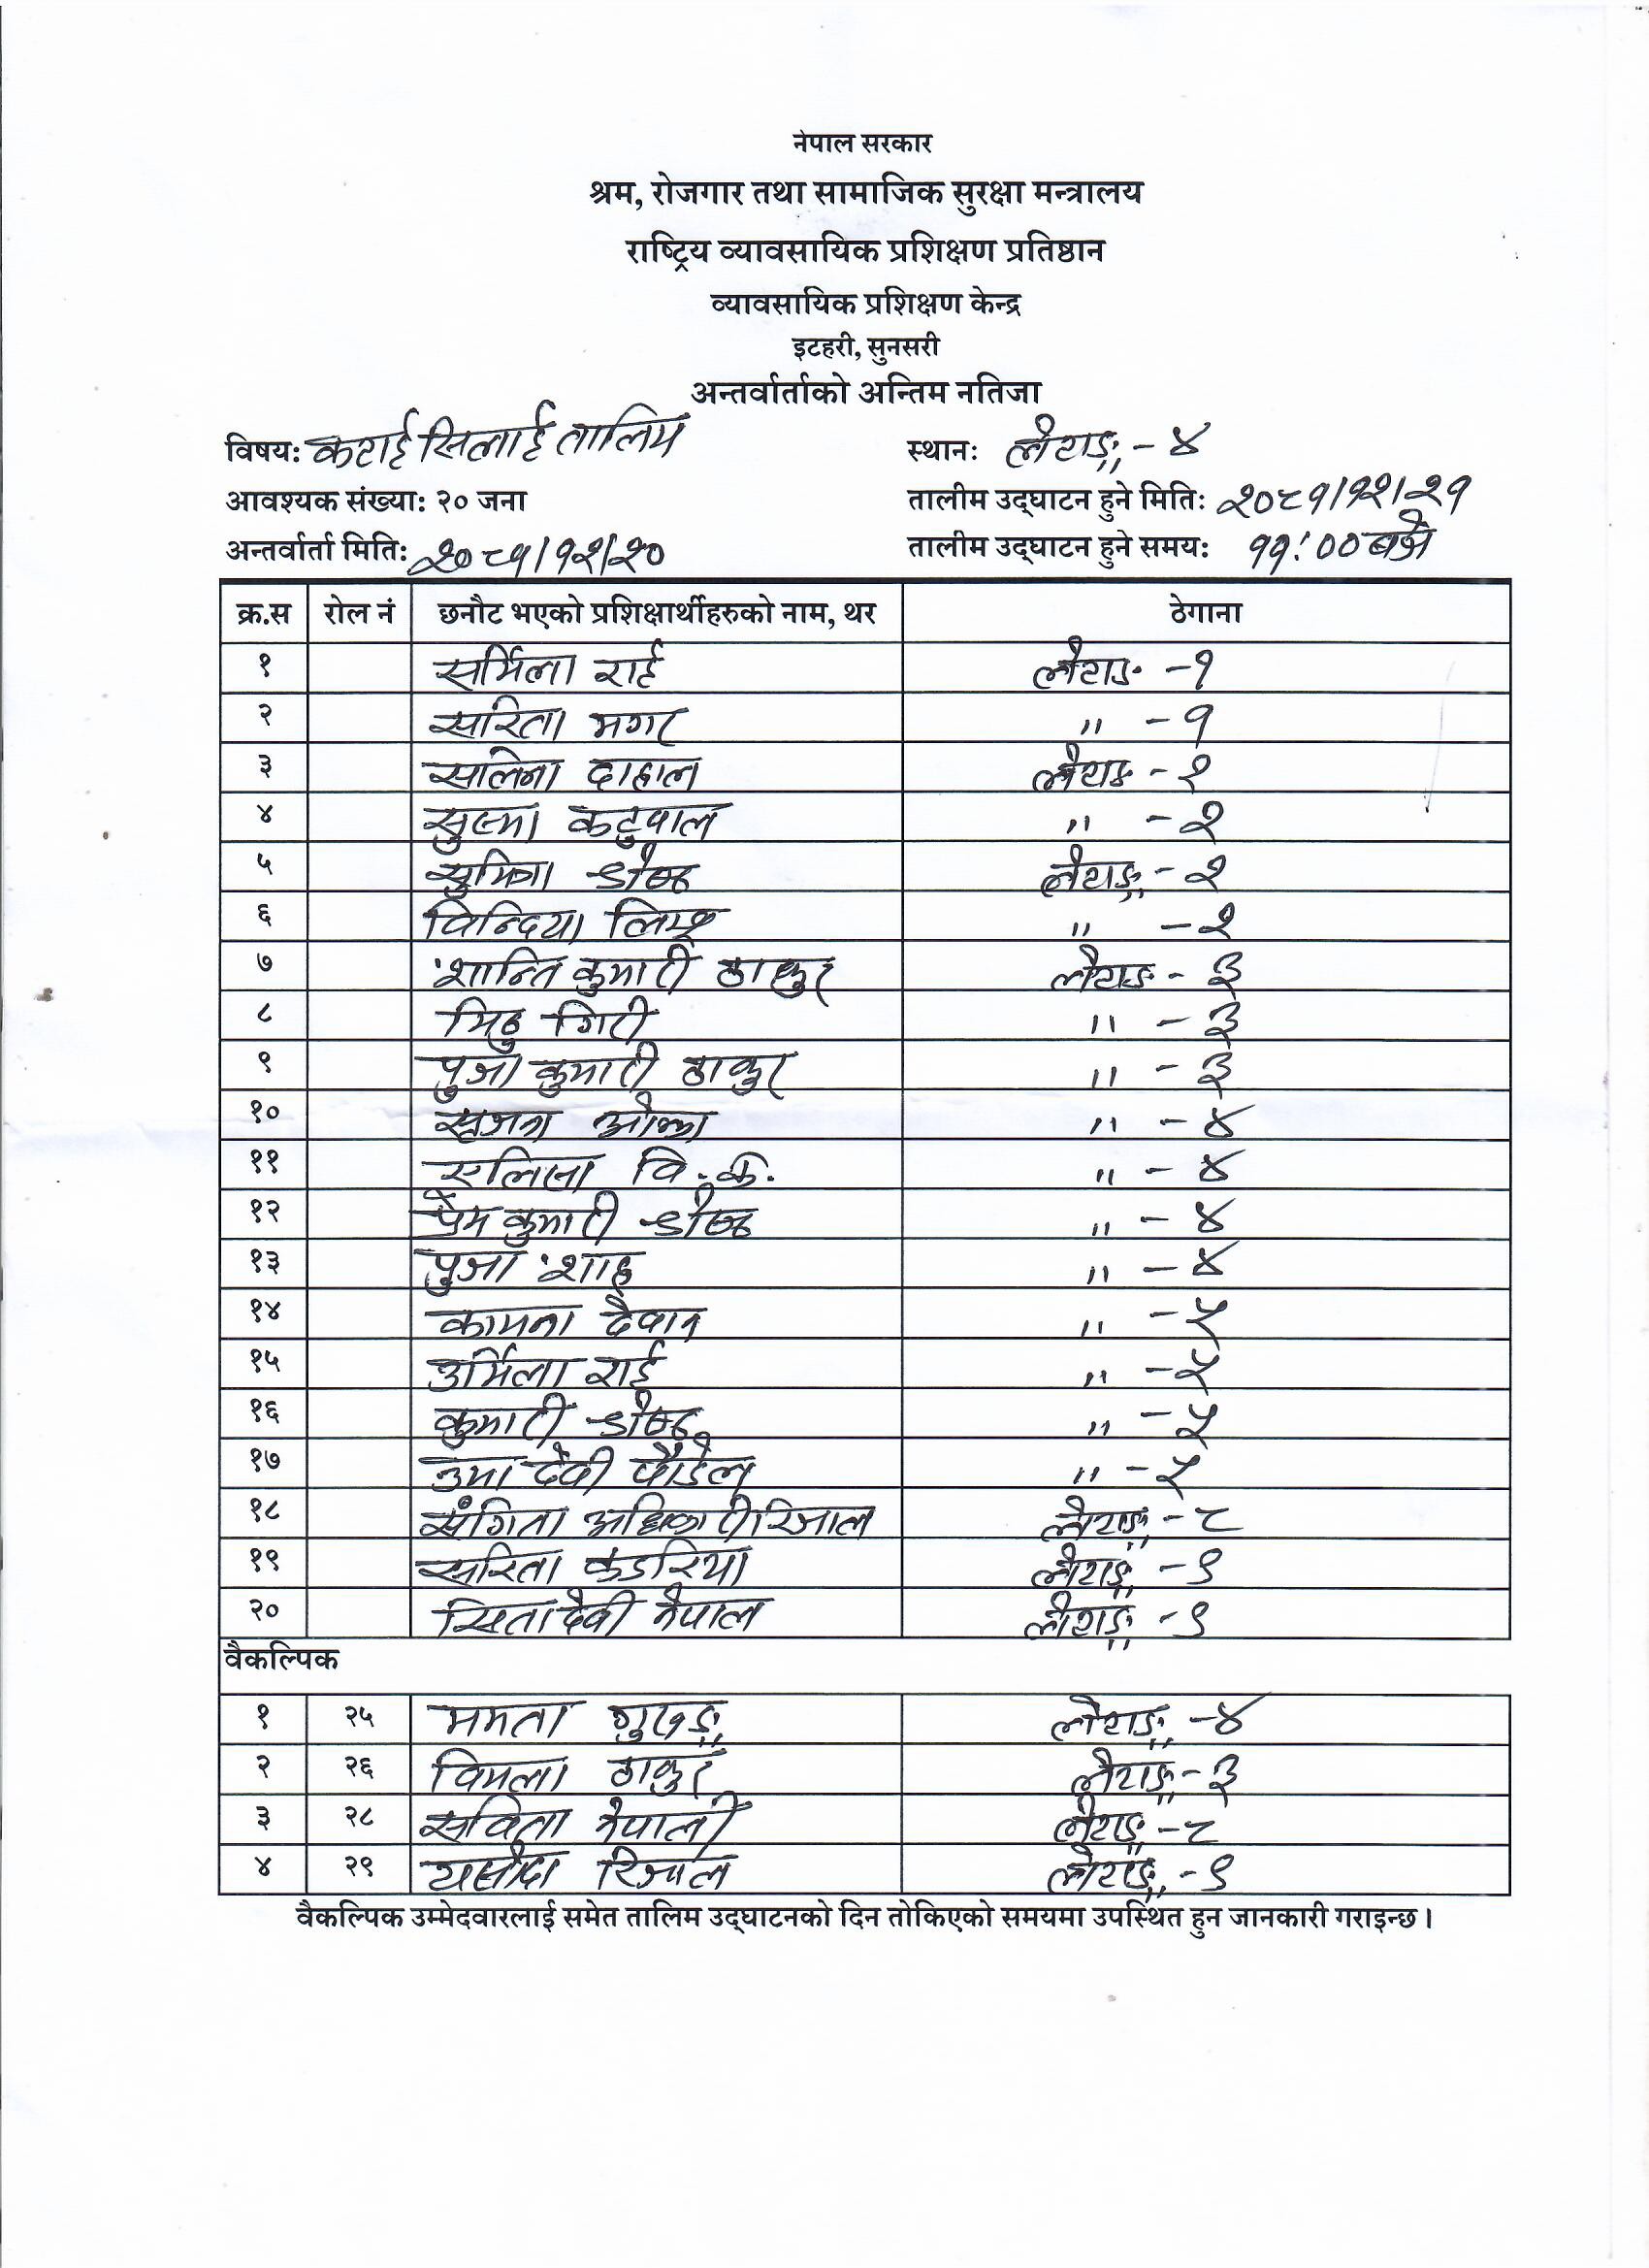 नेपाल सरकार
श्रम, रोजगार तथा सामाजिक सुरक्षा मन्त्रालय
राष्ट्रिय व्यावसायिक प्रशिक्षण प्रतिष्ठान
व्यावसायिक प्रशिक्षण केन्द्र
इटहरी, सुनसरी
अन्तर्वार्ताको अन्तिम नतिजा
विषय: कटाई सिलाई तालिम स्थान: लेटाङ्ग - ४
आवश्यक संख्या: २० जना तालीम उद्घाटन हुने मिति: २०८१/१२/२१
अन्तर्वार्ता मिति: २०८१/१२/२० तालीम उद्घाटन हुने समय: ११:०० बजे
क्र.स रोल नं छनौट भएको प्रशिक्षार्थीहरुको नाम, थर ठेगाना
१ सर्मिला राई लेटाङ - १
२ सरिता मगर " - १
३ सलिना दाहाल लेटाङ - २
४ सुष्मा कटुवाल " - २
५ सुमित्रा श्रेष्ठ लेटाङ्ग - २
६ विन्दिया लिम्बू " - २
७ शान्ति कुमारी ठाकुर लेटाङ - ३
८ मिठु गिरी " - ३
९ पुजा कुमारी ठाकुर " - ३
१० सृजना ओझा " - ४
११ एलिजा वि.क. " - ४
१२ प्रेम कुमारी श्रेष्ठ " - ४
१३ पुजा शाह " - ४
१४ कामना देवान " - ५
१५ उर्मिला राई " - ५
१६ कुमारी श्रेष्ठ " - ५
१७ उमा देवी पौडेल " - ५
१८ संगिता अधिकारी रिजाल लेटाङ्ग - ८
१९ सरिता कडरिया लेटाङ्ग - ९
२० सितादेवी नेपाल लेटाङ्ग - ९
वैकल्पिक
१ २५ ममता लेटाङ्ग - ४
२ २६ विमला ठाकुर लेटाङ्ग - ३
३ २८ सविता नेपाली लेटाङ्ग - ८
४ २९ यसोदा रिजाल लेटाङ्ग - ९
वैकल्पिक उम्मेदवारलाई समेत तालिम उद्घाटनको दिन तोकिएको समयमा उपस्थित हुन जानकारी गराइन्छ ।